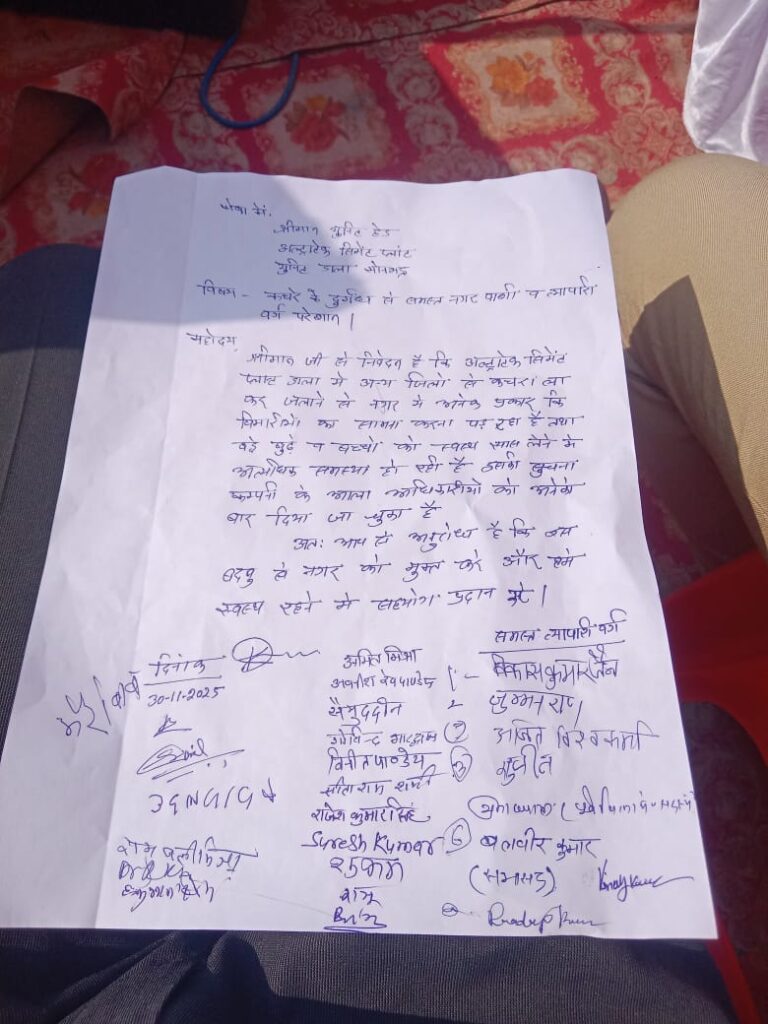 सेवा में,
श्रीमान युनिट हेड
अल्ट्राटेक सिमेंट प्लांट
युनिट डाला सोनभद्र
विषय - कचरे के दुर्गंध से समस्त नगर वासी व व्यापारी
वर्ग परेशान |
महोदय,
श्रीमान जी से निवेदन है कि अल्ट्राटेक सिमेंट
प्लांट डाला में अन्य जिलो से कचरा ला
कर जलाने से नगर में अनेक प्रकार कि
बिमारीओ का सामना करना पड़ रहा है तथा
बड़े बुढ़े व बच्चो को स्वच्छ सास लेने में
अत्यधिक समस्या हो रही है इसकी सुचना
कम्पनी के आला अधिकारीयो को अनेको
बार दिया जा चुका है
अतः आप से अनुरोध है कि इस
बदबु से नगर को मुक्त करे और हमे
स्वस्थ रहने में सहयोग प्रदान करे |
समस्त व्यापारी वर्ग
दिनांक
30-11-2025
अमित मिश्रा
अवनीश देव पाण्डेय
सैमुददीन
गोविन्द
विनीत पाण्डेय
सीता राम शर्मा
राजेश कुमार सिंह
Suresh Kumar
राजु
1 - विकास कुमार जैन
2
अजित विश्वकर्मा
सुजीत
6 बलवीर कुमार
(सभासद)
Pradeep Kumar